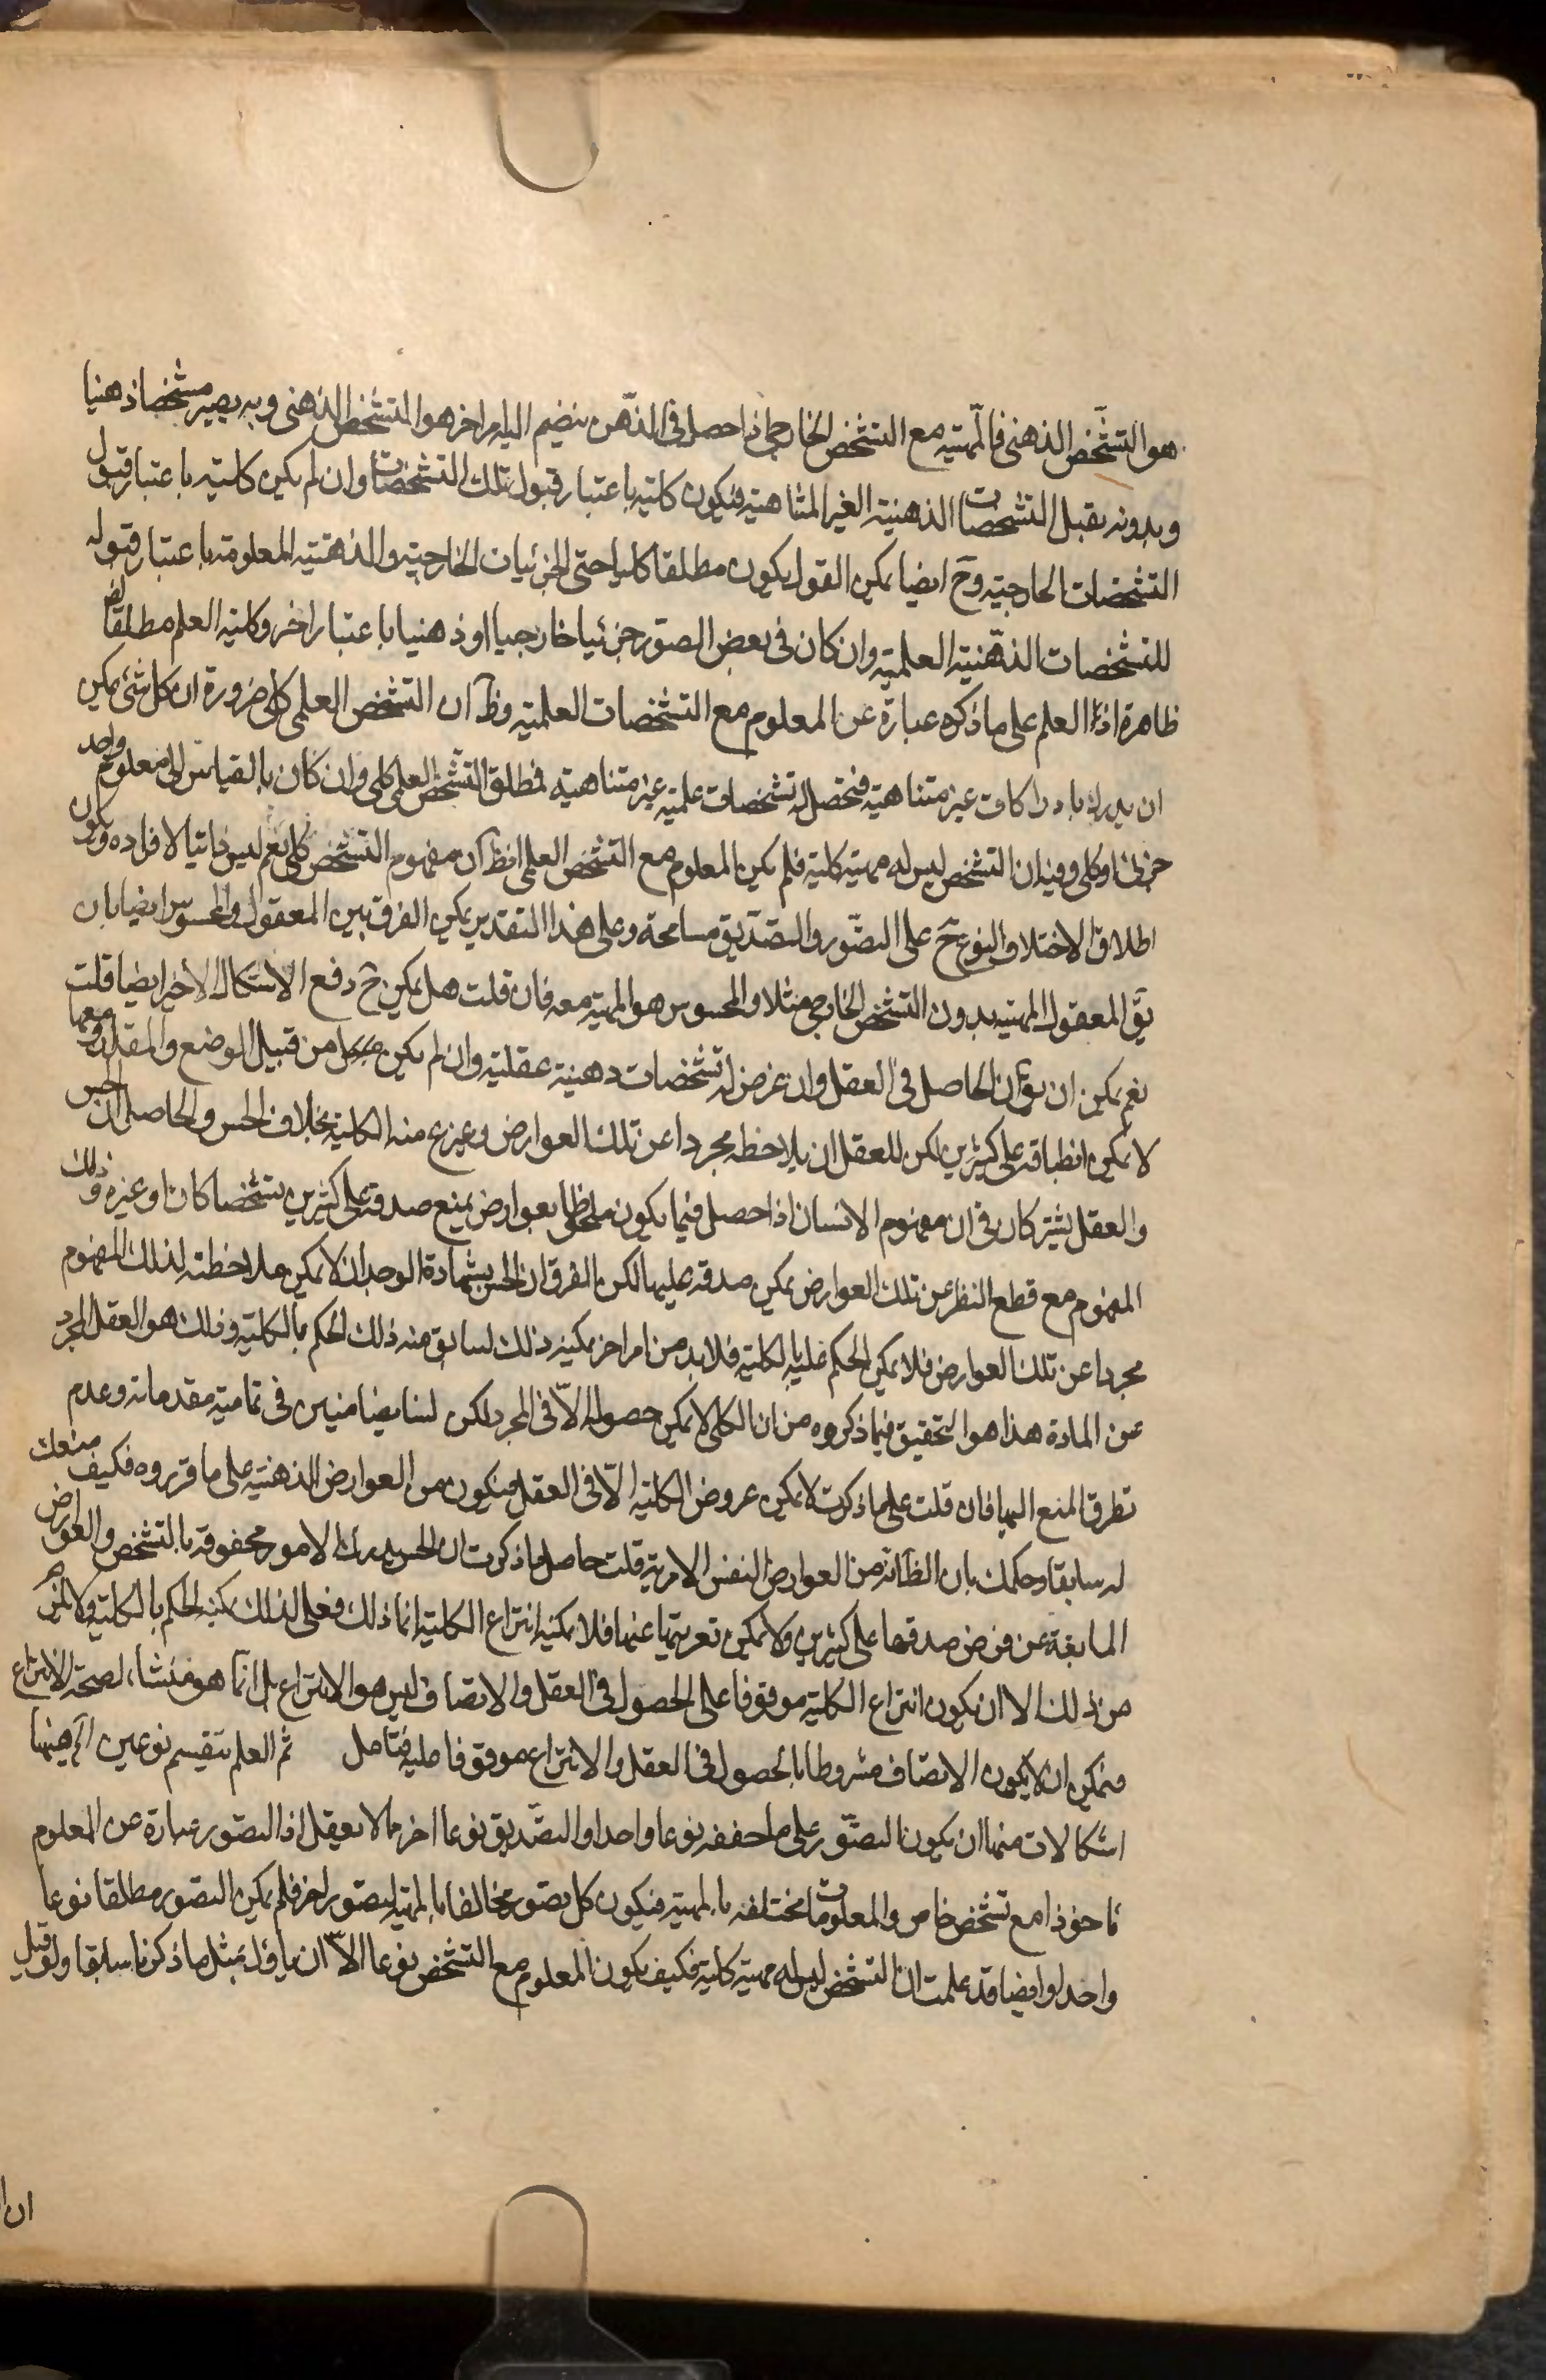 هو التشخص الذهنى فالمهية مع التشخص الخارجى اذا حصل فى الذهن ينضم اليه امر اخر هو التشخص الذهنى وبه يصير مشخصا ذهنيا
وبدونه يقبل التشخصات الذهنية الغير المتناهية فيكون كليته باعتبار قبول تلك التشخصات وان لم يكن كليته باعتبار قبول
التشخصات الخارجية وح ايضا يمكن القول بكون مطلقا كليا حتى الجزئيات الخارجية والذهنية المعلومة باعتبار قبوله
للتشخصات الذهنية العلمية وان كان فى بعض الصور جزئيا خارجيا او ذهنيا باعتبار اخر وكلية العلم مطلقا
ظاهرة اذ العلم على ما ذكره عبارة عن المعلوم مع التشخصات العلمية وظ ان التشخص العلمى كلى ضرورة ان كل شئ يمكن
ان يدرك بادراكات غير متناهية فتحصل له تشخصات علمية غير متناهية فمطلق التشخص العلمى كلى وان كان بالقياس الى معلوم واحد
جزئى او كلى وفيه ان التشخص ليس له مهية كلية فلم يكن المعلوم مع التشخص العلمى ان مفهوم التشخص كلى نعم ليس ذاتيا لافراده ويكون
اطلاق الاختلاف النوع ح على التصور والتصديق مسامحة وعلى هذا التقدير يمكن الفرق بين المعقول والمحسوس ايضا بان
يق المعقول المهية بدون التشخص الخارجى مثلا والمحسوس هو المهية معه فان قلت هل يمكن ح دفع الاشكال الاخير ايضا قلت
نعم يمكن ان يق ان الحاصل فى العقل وان عرض له تشخصات ذهنية عقلية وان لم يكن من قبيل الوضع والمقدار ومعها
لا يمكن انطباقه على كثيرين لكن للعقل ان يلاحظه مجردا عن تلك العوارض وينزع منه الكلية بخلاف الحس والحاصل ان الحس
والعقل يشتركان فى ان مفهوم الانسان اذا حصل فيها يكون ملحوظا بعوارض يمنع صدقه على كثيرين تشخصا كان او غيره وذلك
المفهوم مع قطع النظر عن تلك العوارض يمكن صدقه عليها لكن الفرق ان الحس بشهادة الوجدان لا يمكن ملاحظته لذلك المفهوم
مجردا عن تلك العوارض فلا يمكن الحكم عليه بالكلية فلا بد من امر اخر يمكنه ذلك منه ذلك الحكم بالكلية وذلك هو العقل المجرد
عن المادة هذا هو التحقيق فيما ذكروه من ان الكلى لا يمكن حصوله الا فى المجرد لكن لسنا بضامنين فى تمامية مقدماته وعدم
تطرق المنع اليها فان قلت على ما ذكرت لا يمكن عروض الكلية الا فى العقل فيكون من العوارض الذهنية على ما قرروه فكيف منعك
له سابقا وحكمك بان الظ انه من العوارض النفس الامرية قلت حاصل ما ذكرت ان الحس يدرك الامور محفوفة بالتشخص والعوارض
المانعة عن فرض صدقها على كثيرين ولا يمكن تعريتها عنها فلا يمكنه انتزاع الكلية انما ذلك فعل العقل لذلك يمكنه الحكم بالكلية ولا يلزم
من ذلك الا ان يكون انتزاع الكلية موقوفا على الحصول فى العقل والاتصاف ليس هو الانتزاع بل انما هو منشاء لصحة الانتزاع
فيمكن ان لا يكون الاتصاف مشروطا بالحصول فى العقل والانتزاع موقوفا عليه فتامل ثم العلم ينقسم نوعين اه هيهنا
اشكالات منها ان يكون التصور على ما حققه نوعا واحدا والتصديق نوعا اخر مما لا يعقل اذ التصور عبارة عن المعلوم
ماخوذا مع تشخص خاص والمعلومات مختلفة بالمهية فيكون كل تصور مخالفا بالمهية لتصور اخر فلم يكن التصور مطلقا نوعا
واحدا وايضا قد علمت ان التشخص ليس له مهية كلية فكيف يكون المعلوم مع التشخص نوعا الا ان ياول بمثل ما ذكرنا سابقا ولو قيل
ان ا